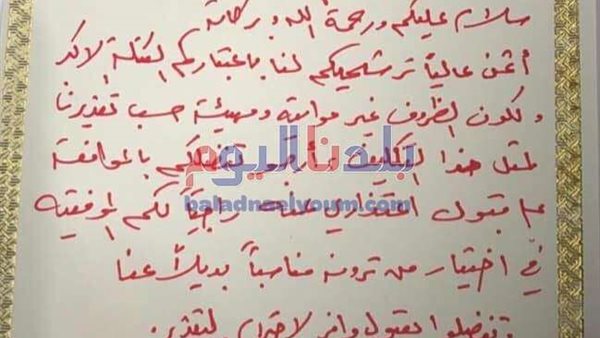 سلام عليكم ورحمة الله وبركاته
أثمن عالياً ترشيحكم لنا باعتباركم الكتلة الاكبر
ولكون الظروف غير مواتية ومهيئة حسب تقديرنا
لمثل هذا التكليف أرجو تفضلكم بالموافقة
على قبول اعتذاري عنه راجياً لكم الموفقيه
في اختيار من ترونه مناسباً بديلاً عنا
وتفضلوا بقبول وافر الاحترام والتقدير.
بلدنا اليوم
baladnaelyoum.com